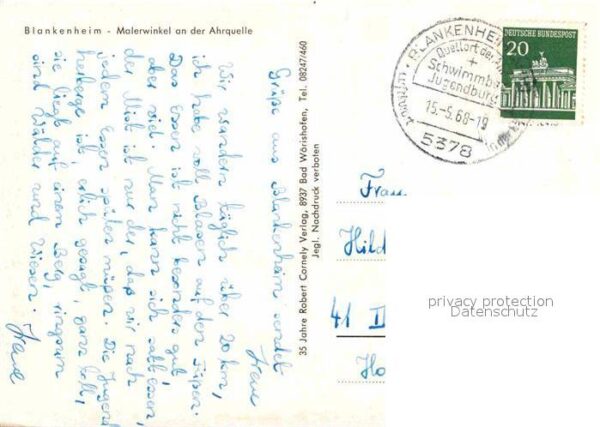 Blankenheim - Malerwinkel an der Ahrquelle
Grüße aus Blankenheim sendet
Irene
Wir wandern täglich über 20 km,
ich habe voll Blasen auf den Füßen.
Das Essen ist nicht besonders gut,
aber viel. Man kann sich sattessen,
der Mist ist nur der, daß wir nach
jedem Essen spülen müßen. Die Jugend
herberge ist ehrlich gesagt, ganz toll,
sie liegt auf einem Berg, ringsum
sind Wälder und Wiesen.
Irene
35 Jahre Robert Cornely Verlag, 8937 Bad Wörishofen, Tel. 08247/460
Jegl. Nachdruck verboten
BLANKENHEI
Quellort der
+
Schwimmb
Jugendburg
15.-5.68-19
Luftkurort
5378
DEUTSCHE BUNDESPOST
20
Frau
Hild
41 D
Ho
privacy protection
Datenschutz